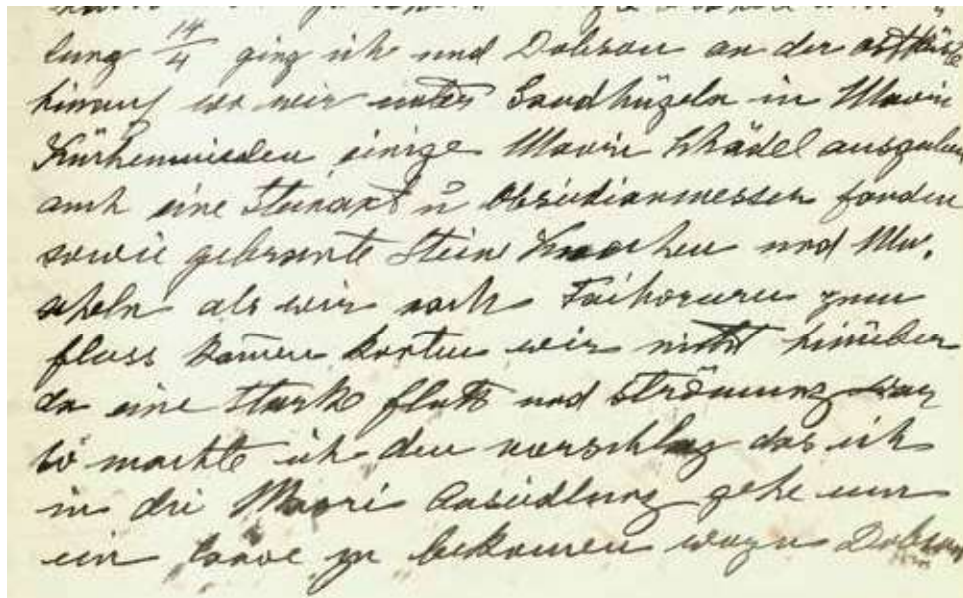 lung 14/4 ging ich und Dobson an der ostküste
hinauf wo wir unter Sandhügeln in Maori
Kürhenmieden einige Maori Schädel ausgaben
auch eine Steinaxt ü Obsidianmesser fanden
sowie gebrante Steine Knochen und Mu-
scheln als wir nach Taikoruru zum
fluss kamen konten wir nicht hinüber
da eine starke fluth und strömung war
so machte ich den vorschlag das ich
in die Maori Ansiedlung gehe um
ein Canoe zu bekomen wozu Dobson